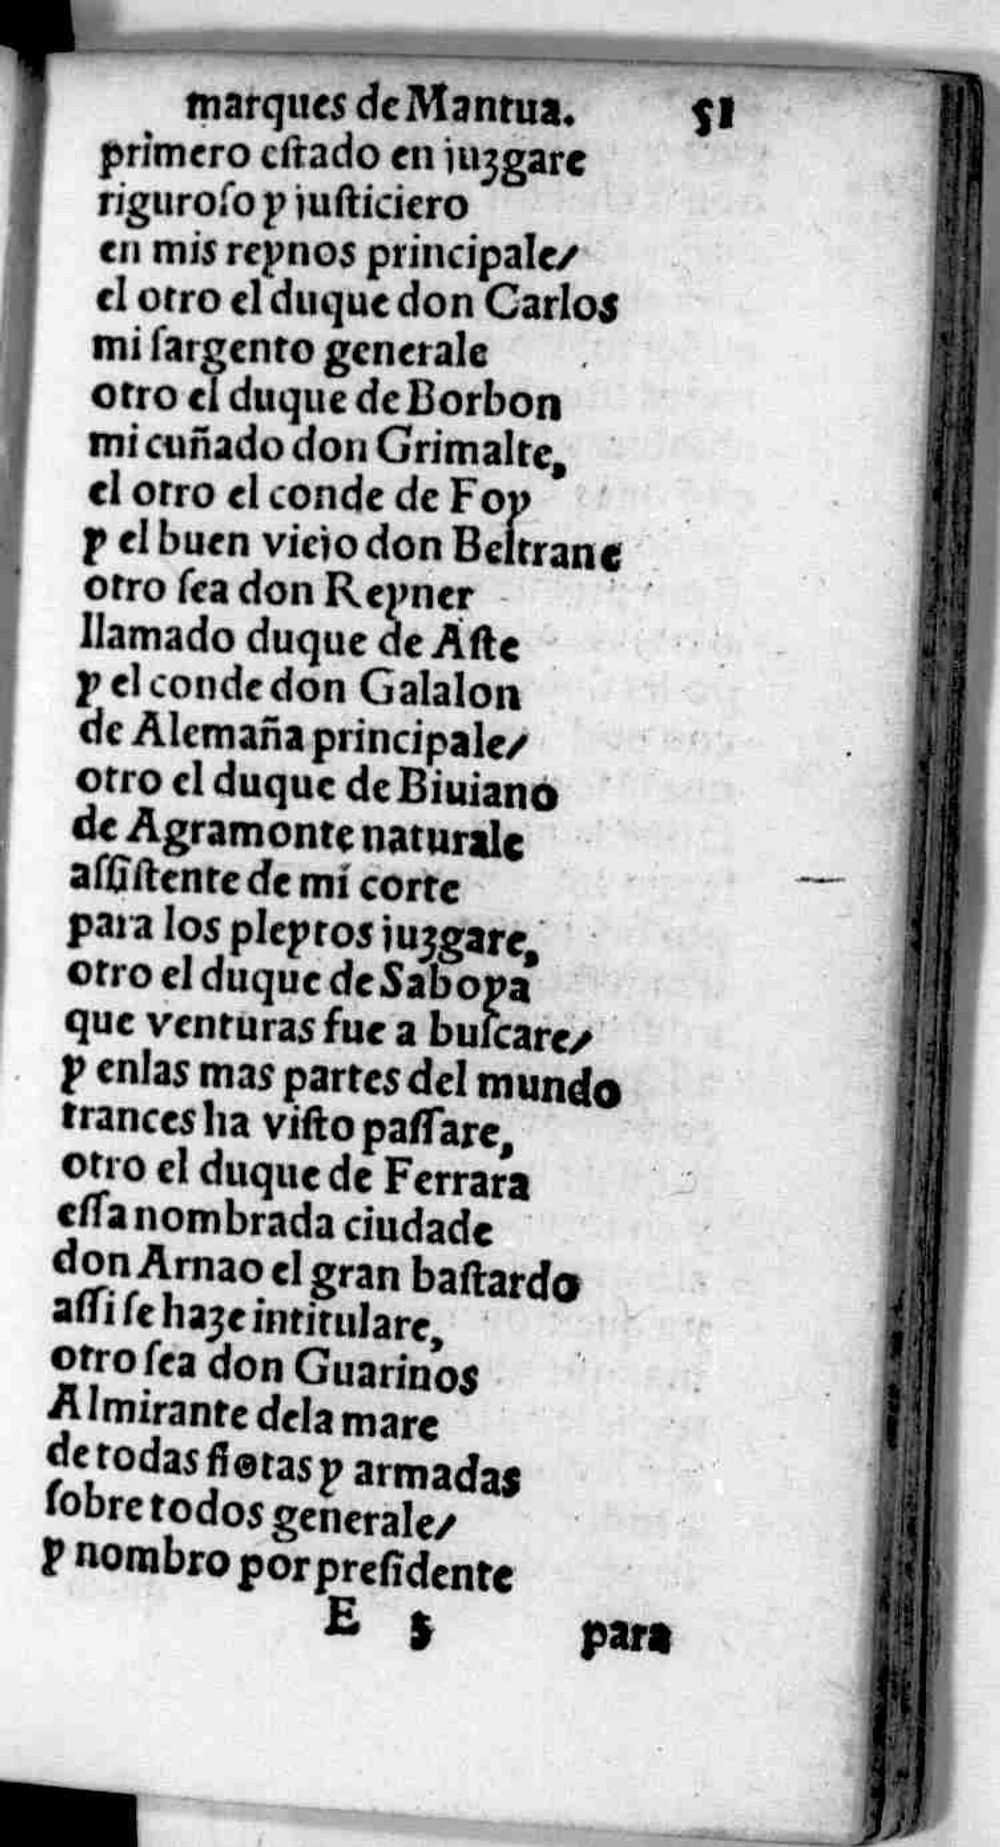 marques de Mantua. 51
primero eſtado en juzgare
riguroſo y juſticiero
en mis reynos principale/
el otro el duque don Carlos
mi ſargento generale
otro el duque de Borbon
mi cuñado don Grimalte,
el otro el conde de Foy
y el buen viejo don Beltrane
otro ſea don Reyner
llamado duque de Aſte
y el conde don Galalon
de Alemaña principale/
otro el duque de Biuiano
de Agramonte naturale
aſſiſtente de mi corte
para los pleytos juzgare,
otro el duque de Saboya
que venturas fue a buſcare/
y enlas mas partes del mundo
trances ha viſto paſſare,
otro el duque de Ferrara
eſſa nombrada ciudade
don Arnao el gran baſtardo
aſſi ſe haze intitulare,
otro ſea don Guarinos
Almirante dela mare
de todas flotas y armadas
ſobre todos generale/
y nombro por preſidente
E 5 para